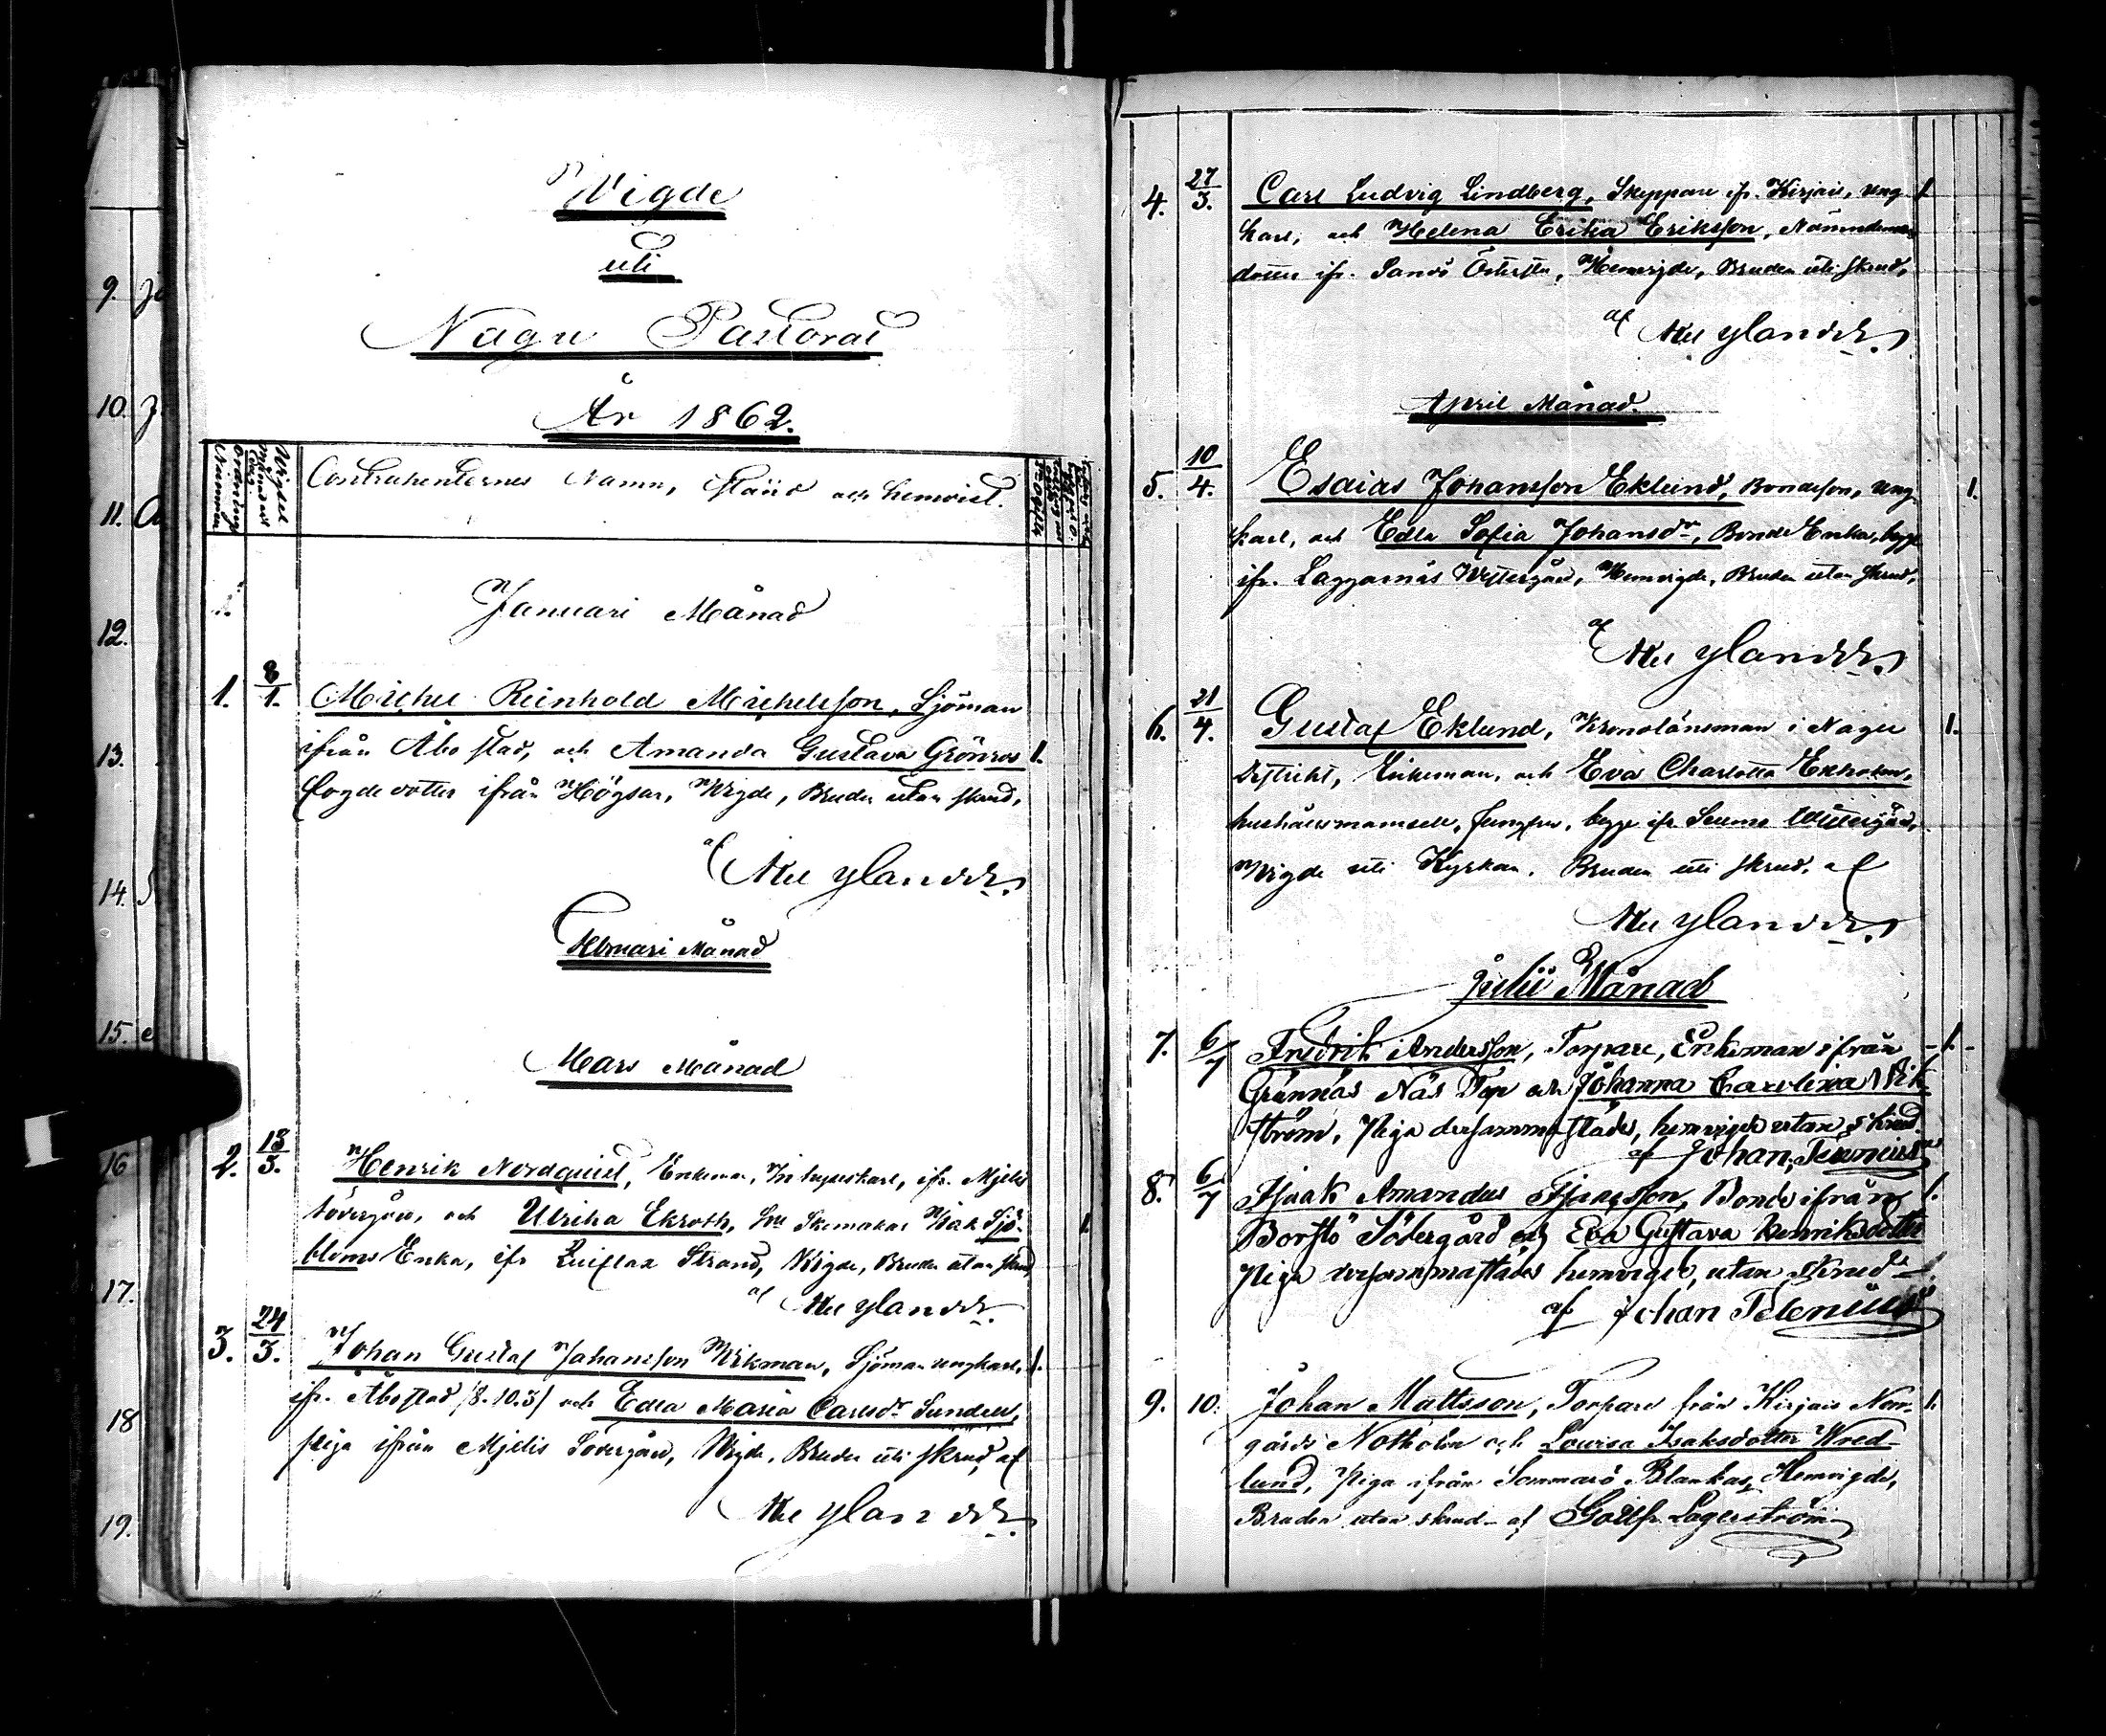 Wigde
uti
Nagu Pastorat
År 1862.
Ordnings Nummer
Wigsel Månad och Dag.
Contrahenternes Namn, stånd och hemvist.
Januari Månad
1. 8/1. Michel Reinhold Michelsson, Sjöman
ifrån Åbo stad, och Amanda Gustava Grönros 1.
fogdedotter ifrån Högsar, Wigde, Bruden utan skrud,
af
Februari Månad
Mars Månad
2. 13/3. Henrik Nordquist, Enkeman, Inhyseskarl, ifr. Mjelis
Södergård, och Ulrika Ekroth, Skomakar Isak Sjö- 1.
bloms Enka, ifr Strand, Wigde, Bruden utan skrud,
af
3. 24/3. Johan Gustaf Johansson Wikman, Sjöman ungkarl, 1.
ifr. Åbo stad /8.10.3/ och Edla Maria Carlsdr Sundell,
piga ifrån Mjelis Södergård, Wigde, Bruden uti skrud, af
4. 27/3. Carl Ludvig Lindberg, Skeppare ifr. Kirjais, ung- 1.
karl, och Helena Erika Eriksson, Nämndemans
dotter ifr. Sandö Österste, Hemvigde, Bruden uti skrud,
af
April Månad.
5. 10/4. Esaias Johansson Eklund, Bondeson, ung- 1.
karl, och Edla Sofia Johansdr, Bonde Enka, begge
ifr. Laggarnäs Westergård, Hemvigde, Bruden utan skrud,
af
6. 21/4. Gustaf Eklund, Kronolänsman i Nagu 1.
distrikt, Enkeman, och Eva Charlotta Ekholm,
hushållsmamsell, Jungfru, begge ifr. Westergård,
Wigde uti Kyrkan, Bruden uti skrud, af
Julii Månad
7. 6/7 Fredrik Andersson, Torpare, Enkeman ifrån - 1. -
Grännäs Näs Torp och Johanna Carolina Wik-
ström, Piga dersammastädes, hemvigde utan skrud.
af Johan Telenius
8. 6/7 Isaak Amandus Isaksson, Bonde ifrån 1.
Borstö Södergård och Eva Gustava Henriksdotter
Piga dersammastädes hemvigde, utan skrud
af Johan Telenius
9. 10. Johan Mattsson, Torpare från Kirjais Norr- 1.
gårds Notholm och Lovisa Isaksdotter Wred-
lund, Piga ifrån Sommarö Blankas, Hemvigde,
Bruden utan skrud - af Gottfr. Lagerström
9.
10.
11.
12.
13.
14.
15.
16
17.
18
19.